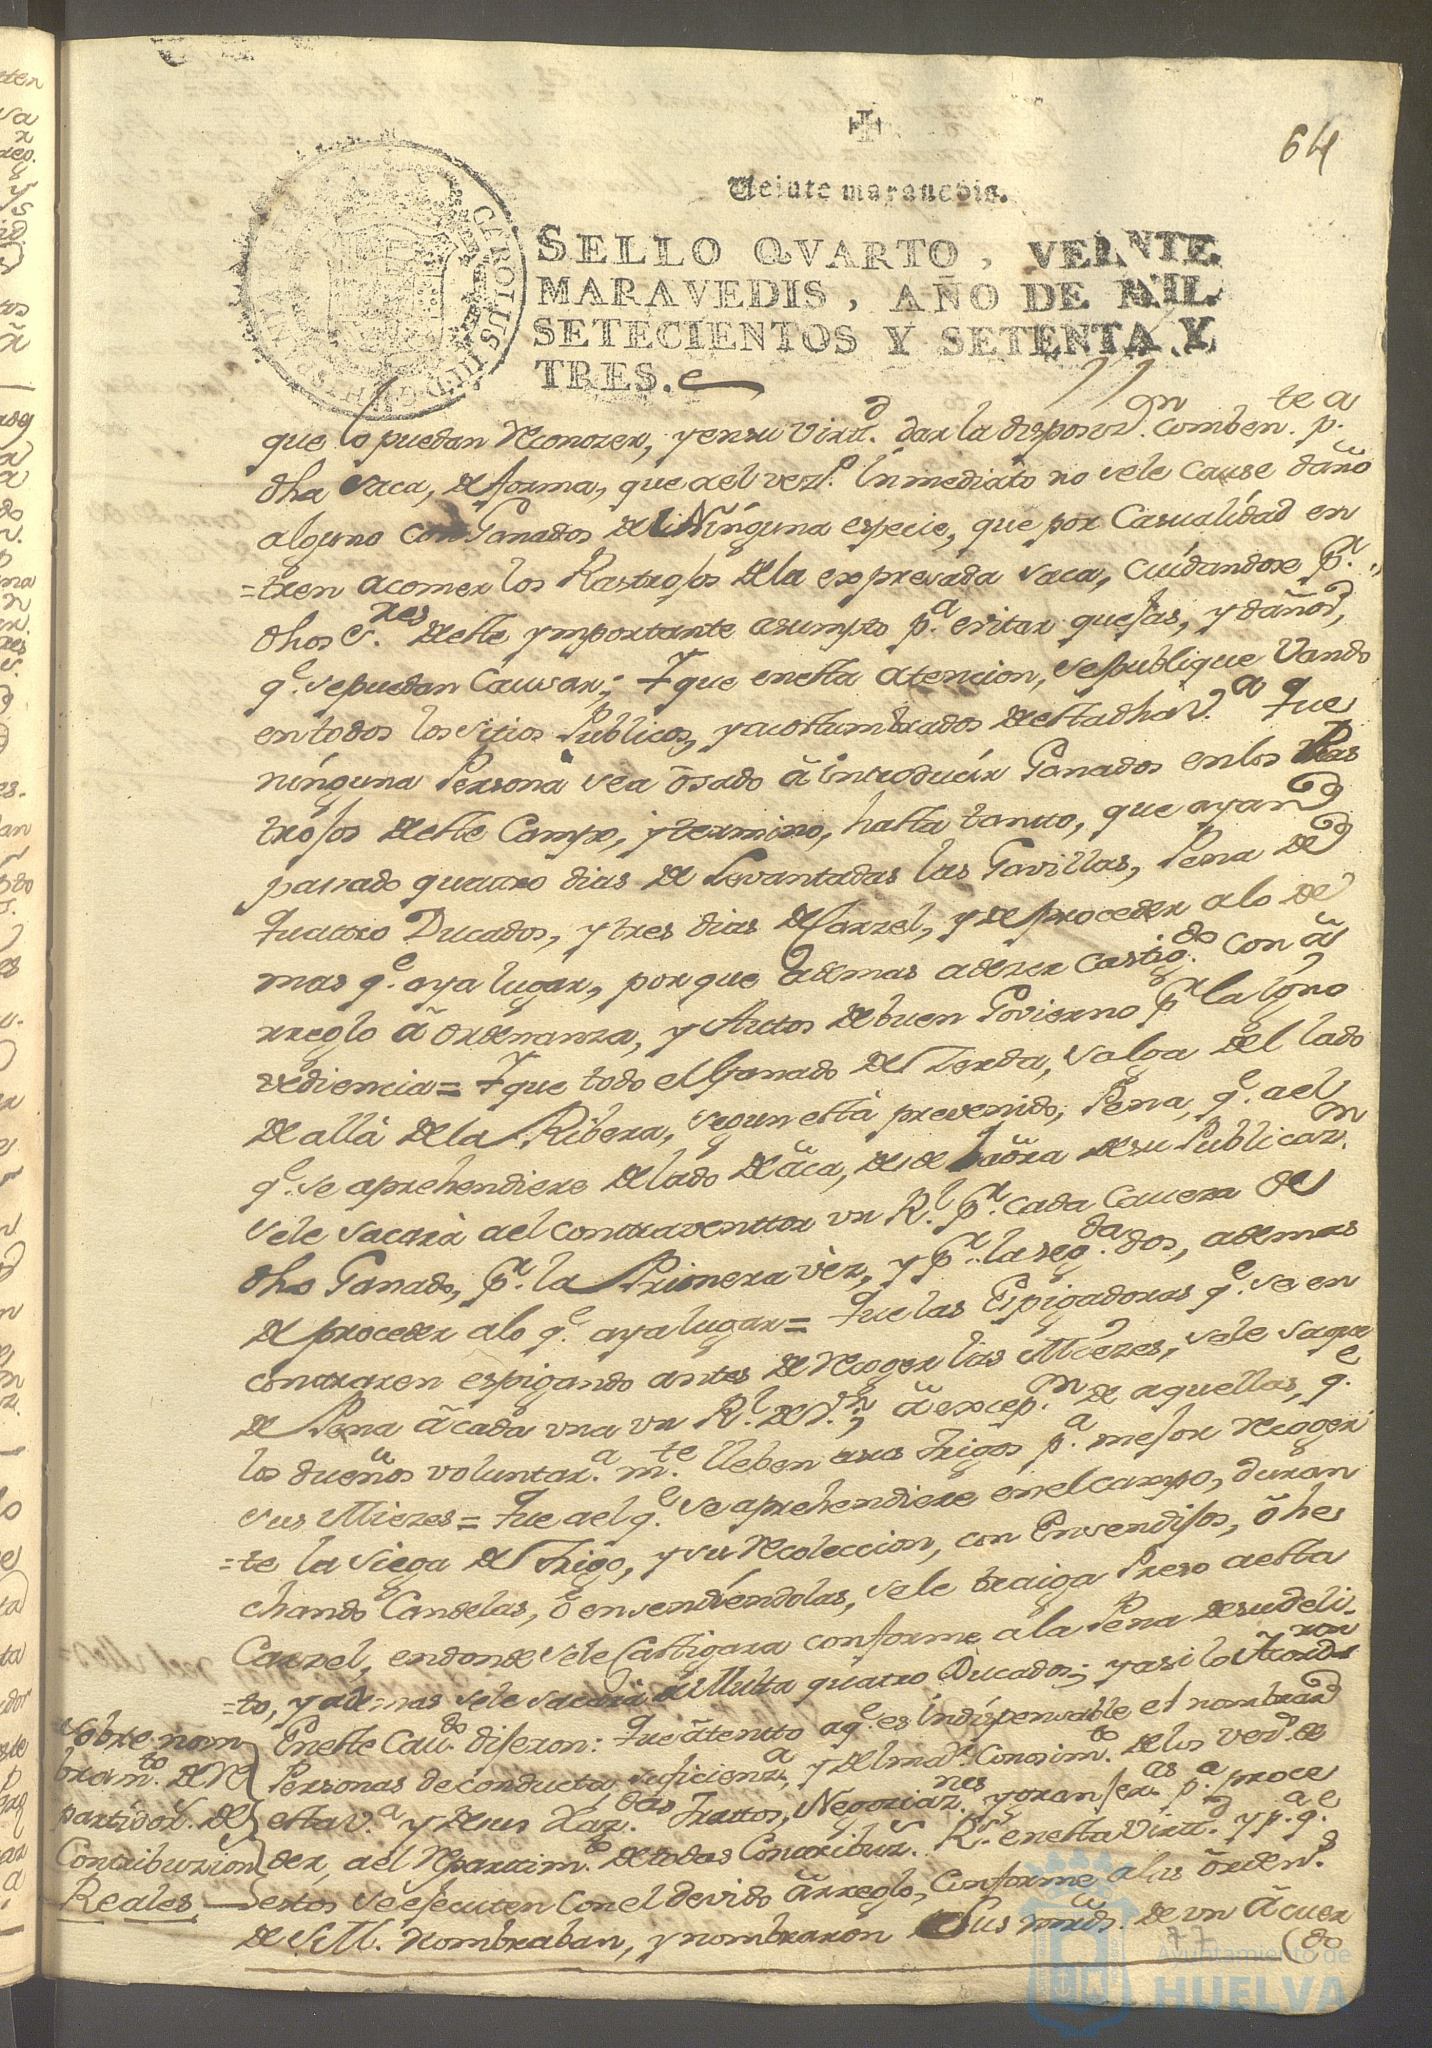 64
Veinte maravedis.
SELLO QVARTO, VEINTE
MARAVEDIS, AÑO DE MIL
SETECIENTOS Y SETENTA Y
TRES.
CAROLUS III D G HISP
que lo puedan Reconozer, y en su Virtd. dar la disposon. combente. pa.
dha Saca, de forma, que ael vezo. Inmediato no sele cause daño
alguno con Ganados de Ninguna especie, que por Casualidad en
=tren acomer los Rastrojos dela expresada saca, cuidandose pr.
dhos Sres. deste ymportante asumpto pa. evitar quejas, y daños,
qe. sepuedan Causar; Y que enesta atencion, sepublique Vando
en todos los sitios Publicos, y acostumbrados destadha Va. Que
ninguna Persona sea osado ã introducir Ganados enlos Ras
trojos deste Campo, y termino, hasta tanto, que ayan
pasado quatro dias de Levantadas las Gavillas, Pena de
Quatro Ducados, y tres dias de Carzel, y de proceder alo de
mas qe. aya lugar, porque ademas adeser castigdo. con ã
rreglo ã ordenanza, y Autos de buen Govierno pr. la Yno
vediencia= Y que todo el Ganado de Zerda, salga del lado
de allà de la Ribera, segun està prevenido, Pena, qe. ael
qe. se aprehendiere del lado de ãca, desde laora desu Publicazn.
sele sacarà ael contraventtor un Rl. pr. cada Caveza de
dho Ganado, pr. la Primera vèz, y pr. la segda. dos, ademas
de proceder alo qe. aya lugar= Que las Espigadoras qe. se en
contraren espigando antes de Recoger las Miezes, sele saque
de Pena ã cada una un Rl. de Vn; ã excepn. de aquellas, qe.
los dueños voluntara.mte. lleben asus Trigos pa. mejor recoger
sus Miezes= Que ael qe. se aprehendiere enel campo, duran
=te la siega de Trigo, y su Recoleccion, con Ensendijos, õ he
chando Candelas, õ ensendiendolas, sele traiga Preso aesta
Carzel, endonde sele Castigara conforme ala Pena desu deli
=to, y ademas sele sacarà de Multa quatro Ducados; y asi lo Acordaron
Sobre nom
bramto. de Re
partidors. de
Contribuzion
Reales
Eneste Cavdo. dijeron: Que ãtento aqe. es indispensable el nombrar
Personas de conducta, suficienza., y de lmar. Conosimto. de los vezs. de
esta Va. y de sus Hazdas. Trattos, Negoziaznes. y Granjerias. pa. proce
der, ael Repartimto. de todas Contribuzs. Rs. enesta Virtd. y pa. qe.
estos se ejecuten con el devido ãrreglo, Conforme alas õrdens.
de S.M. Nombraban, y nombraron Sus mrds. de un ãcuer
(do
77
Ayuntamiento de
HUELVA